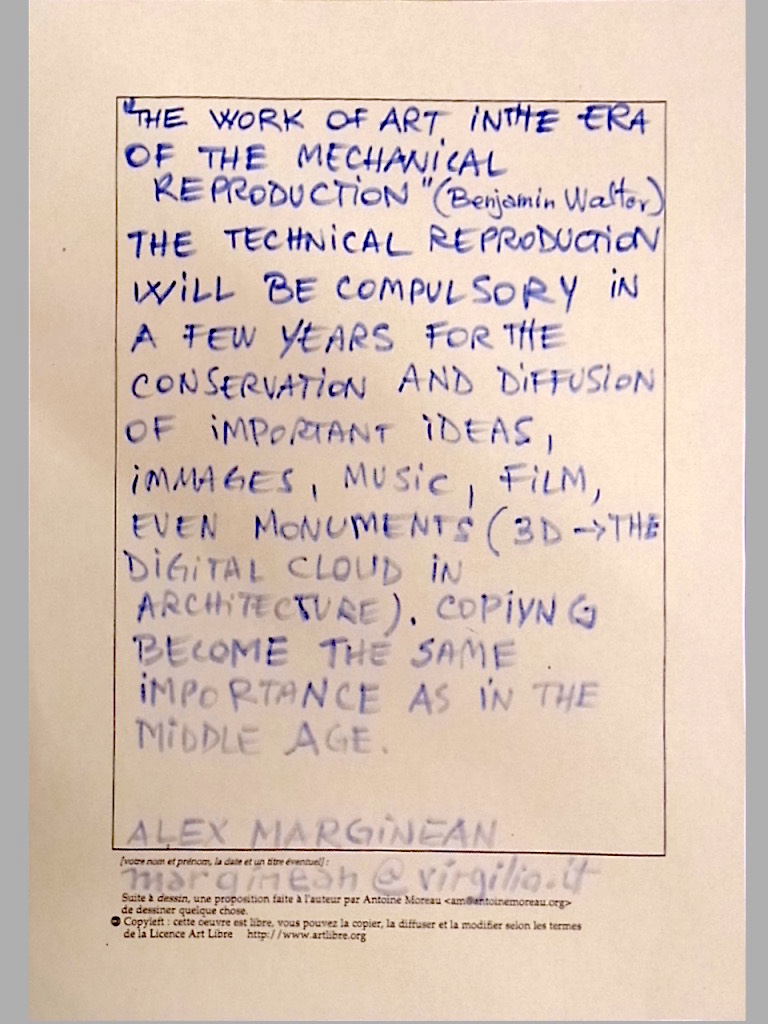 "THE WORK OF ART IN THE ERA
OF THE MECHANICAL
REPRODUCTION" (Benjamin Walter)
THE TECHNICAL REPRODUCTION
WILL BE COMPULSORY IN
A FEW YEARS FOR THE
CONSERVATION AND DIFFUSION
OF IMPORTANT IDEAS,
IMMAGES, MUSIC, FILM,
EVEN MONUMENTS (3D →THE
DIGITAL CLOUD IN
ARCHITECTURE). COPIYNG
BECOME THE SAME
IMPORTANCE AS IN THE
MIDDLE AGE.
ALEX MARGINEAN
[votre nom et prénom, la date et un titre éventuel] :
marginean@virgilio.it
Suite à dessin, une proposition faite à l'auteur par Antoine Moreau <am@antoinemoreau.org>
de dessiner quelque chose.
Copyleft : cette oeuvre est libre, vous pouvez la copier, la diffuser et la modifier selon les termes
de la Licence Art Libre http://www.artlibre.org